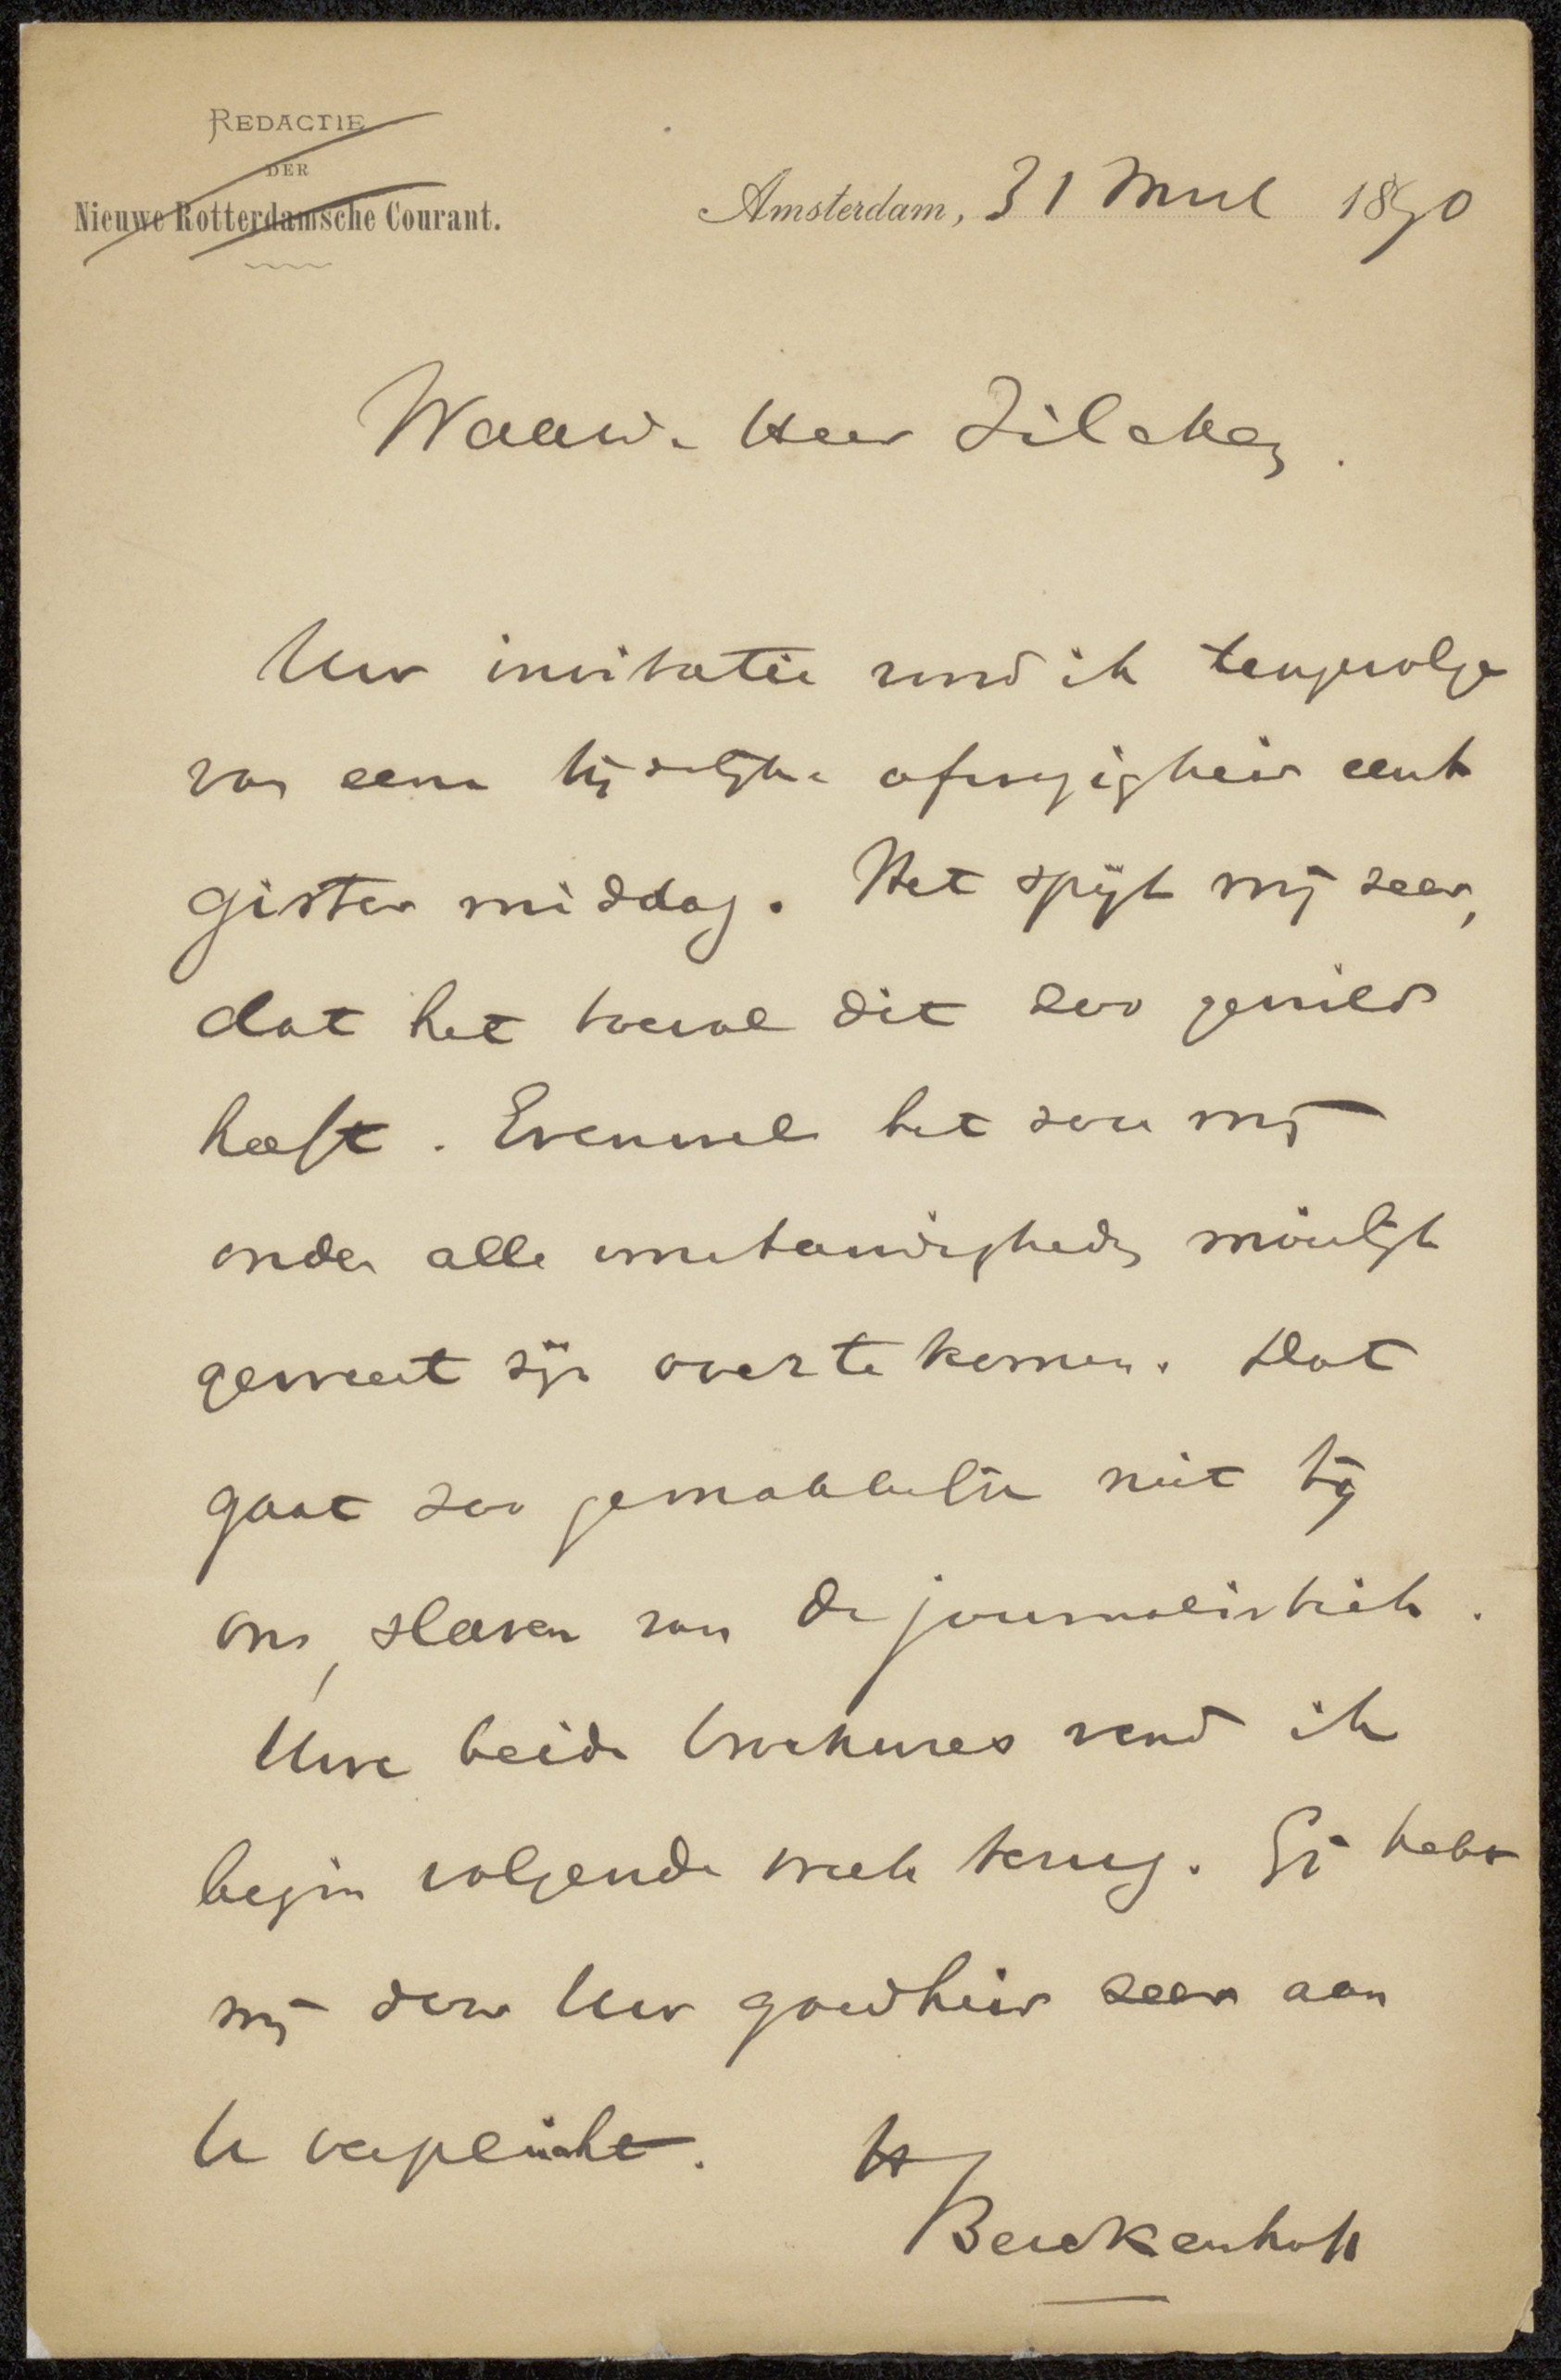 REDACTIE
DER
Nieuwe Rotterdamsche Courant.
Amsterdam, 31 Mrt 1890
Waarde Heer Zilcken.
Uw invitatie vond ik tengevolge
van eene tijdelijke afwezigheid eerst
gister middag. Het spijt mij zeer,
dat het toeval dit zoo gewild
heeft. Evenwel het zou mij
onder alle omstandigheden moeielijk
geweest zijn over te komen. Dat
gaat zoo gemakkelijk niet bij
ons, slaven van de journalistiek.
Uwe beide brochures zend ik
begin volgende week terug. Gij hebt
mij door Uw goedheid zeer aan
U verplicht.
H
Berckenhoff